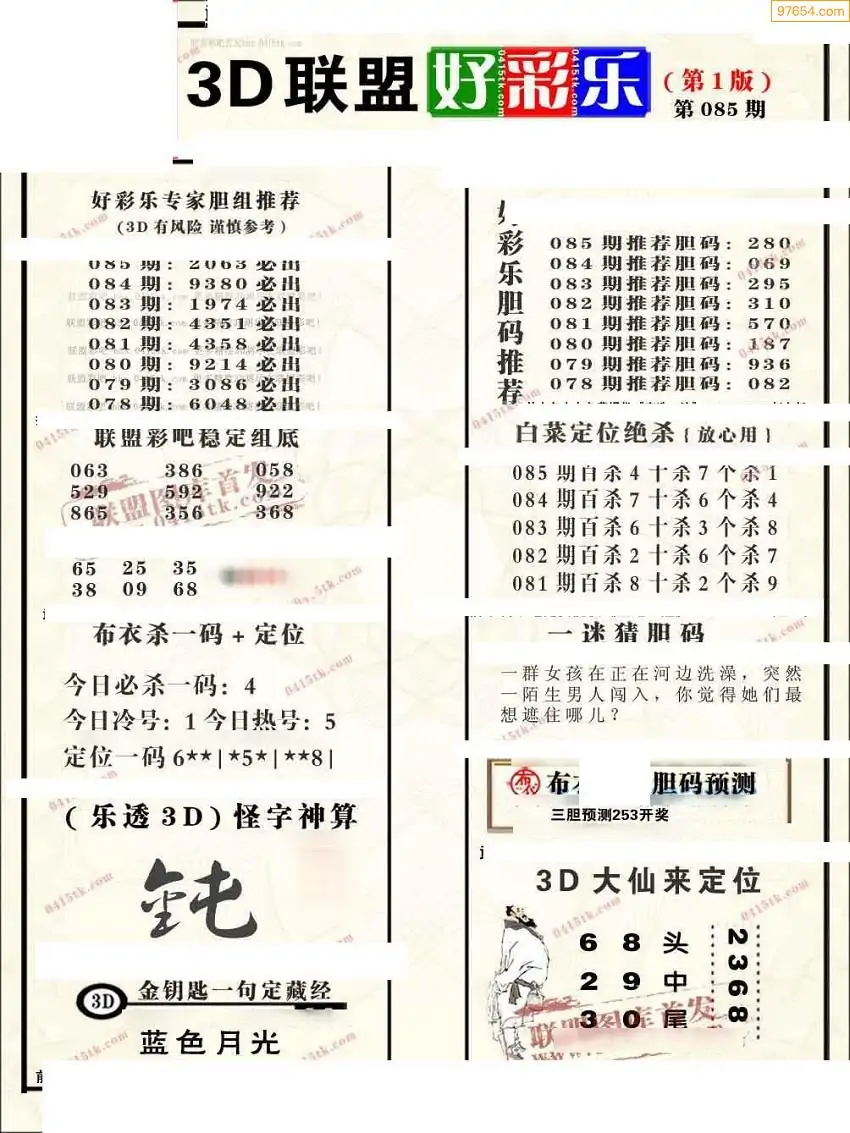 97654.com
3D联盟好彩乐
(第1版)
第085期
好彩乐专家胆组推荐
(3D有风险 谨慎参考)
085期: 2063必出
084期: 9380必出
083期: 1974必出
082期: 4351必出
081期: 4358必出
080期: 9214必出
079期: 3086必出
078期: 6048必出
联盟彩吧稳定组底
063 386 058
529 592 922
865 356 368
65 25 35
38 09 68
布衣杀一码+定位
今日必杀一码: 4
今日冷号: 1 今日热号: 5
定位一码 6**|*5*|**8|
(乐透3D)怪字神算
钝
3D 金钥匙一句定藏经
蓝色月光
彩乐胆码推荐
085期推荐胆码: 280
084期推荐胆码: 069
083期推荐胆码: 295
082期推荐胆码: 310
081期推荐胆码: 570
080期推荐胆码: 187
079期推荐胆码: 936
078期推荐胆码: 082
白菜定位绝杀{放心用}
085期百杀4十杀7个杀1
084期百杀7十杀6个杀4
083期百杀6十杀3个杀8
082期百杀2十杀6个杀7
081期百杀8十杀2个杀9
一迷猜胆码
一群女孩在正在河边洗澡，突然
一陌生男人闯入，你觉得她们最
想遮住哪儿？
布 胆码预测
三胆预测253开奖
3D大仙来定位
6 8 头
2 9 中
3 0 尾
2368
联盟图库首发
0415tk.com